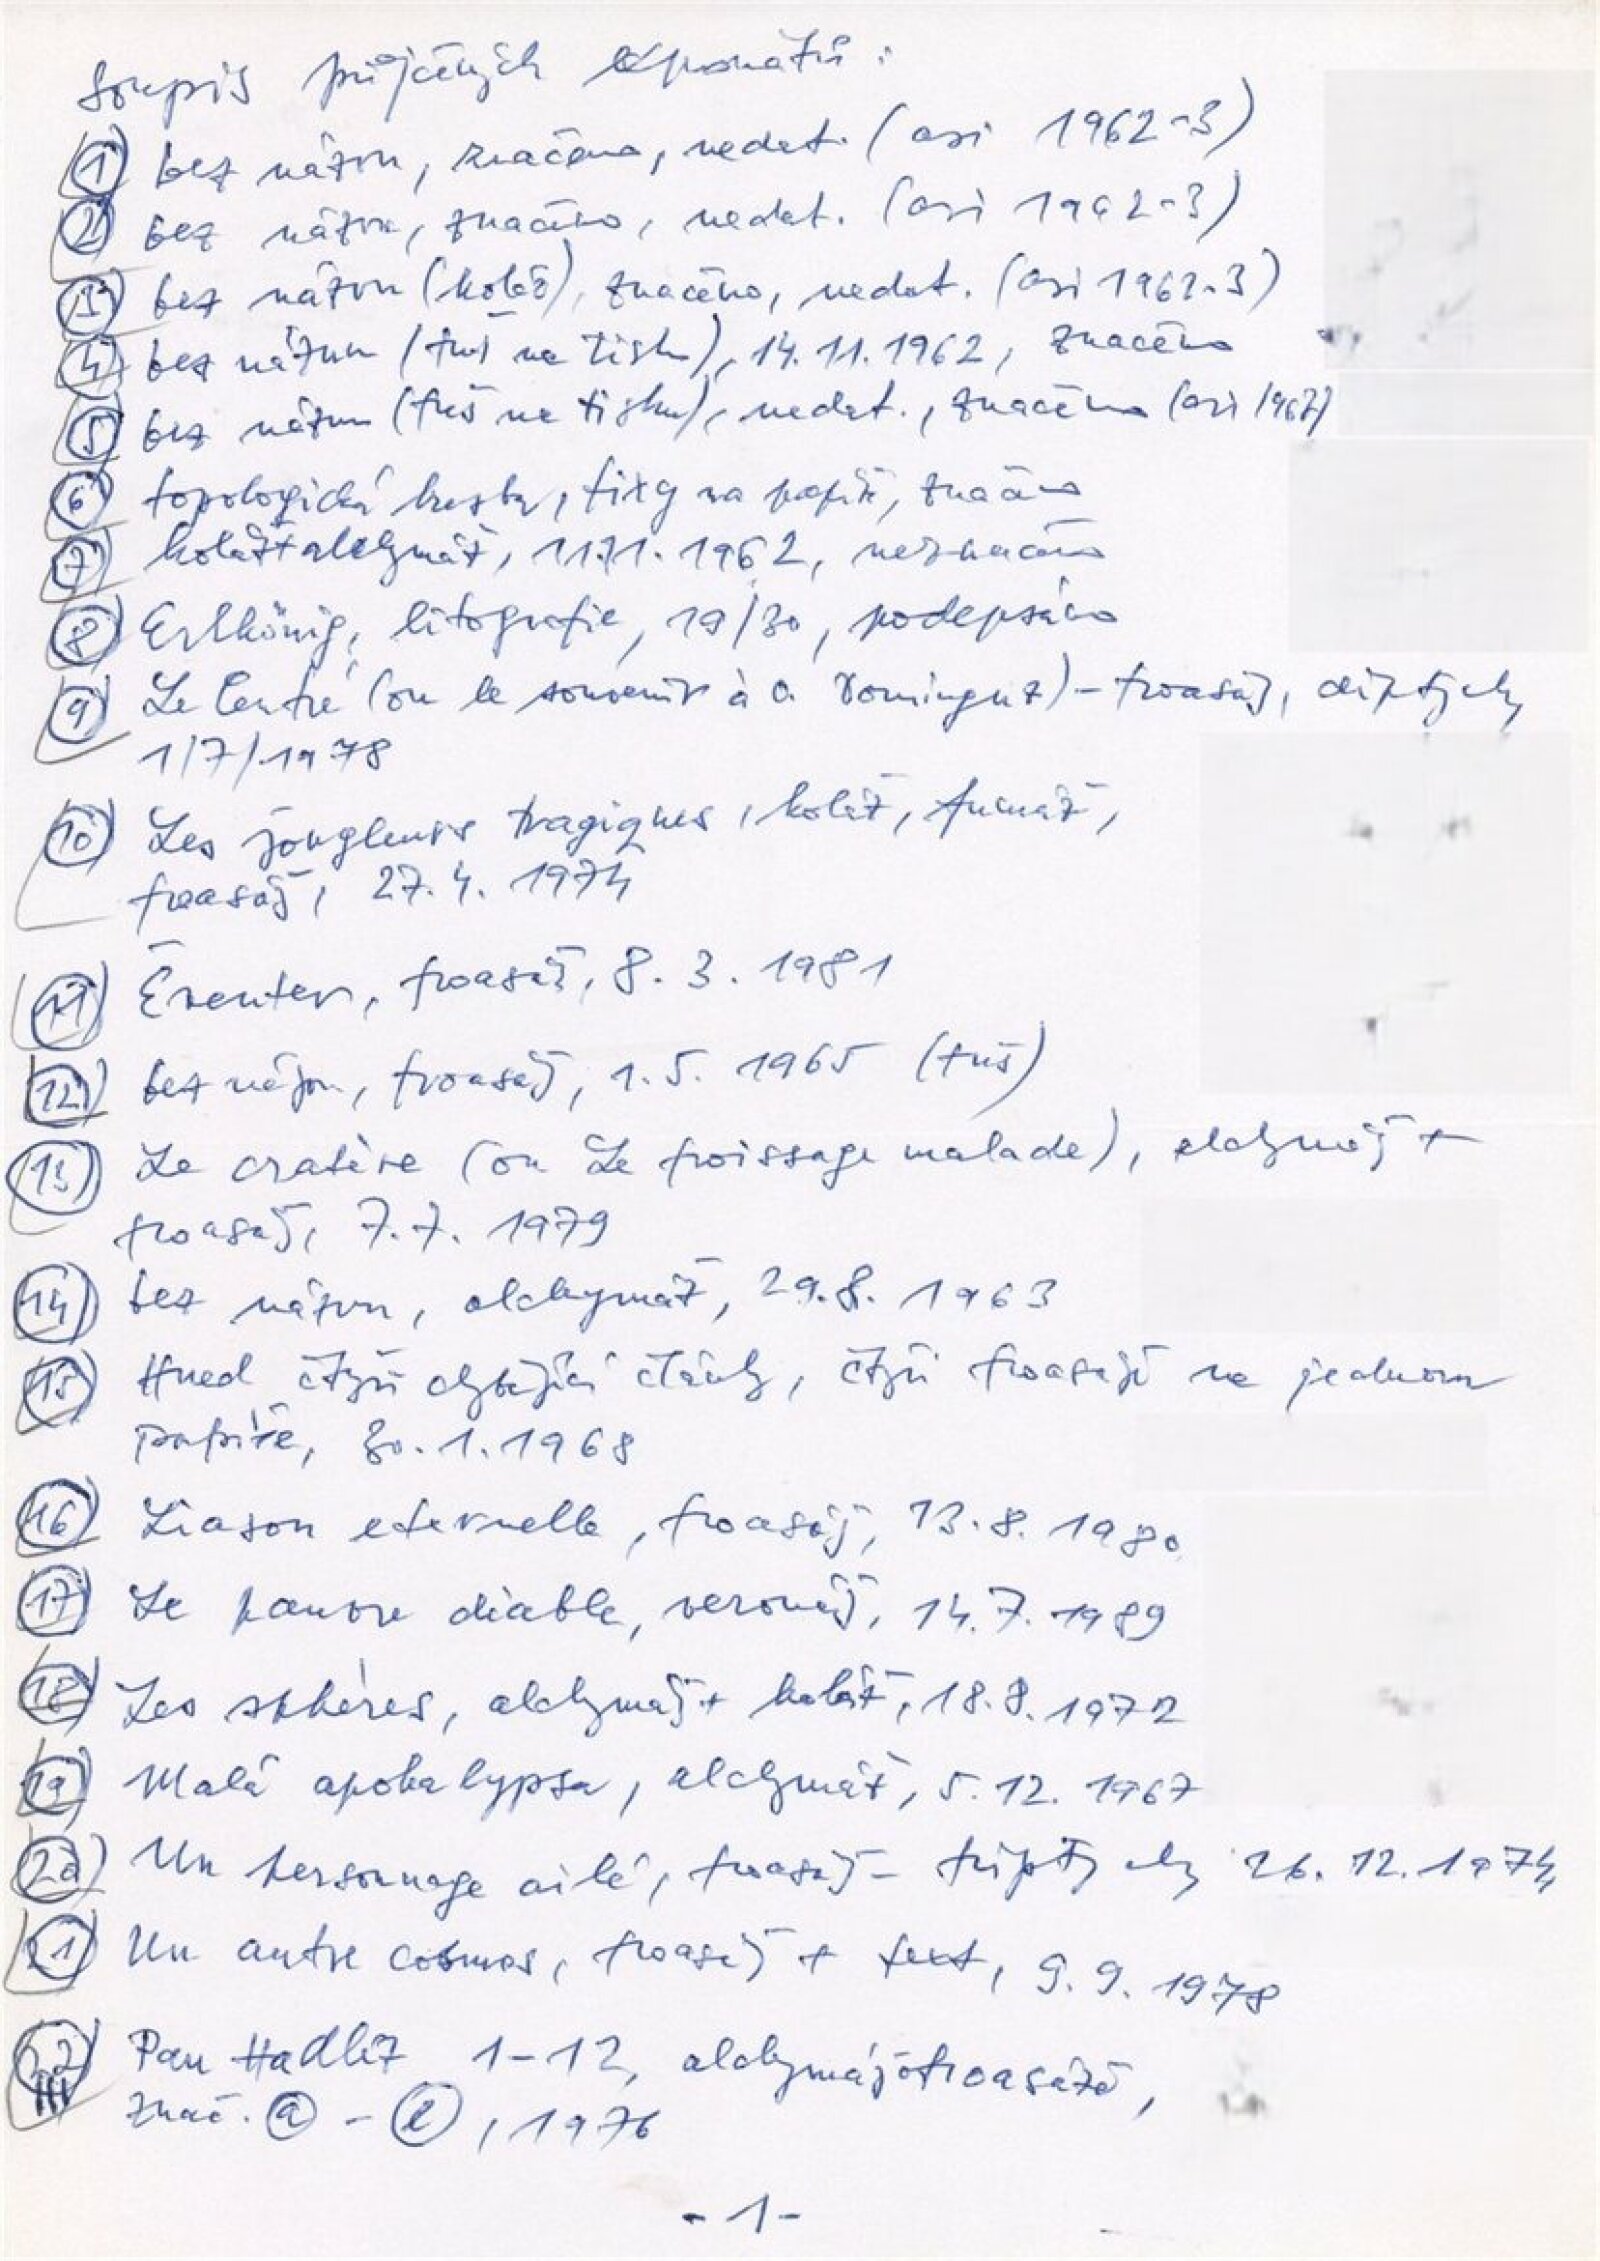 Soupis půjčených exponátů:
1 bez názvu, značeno, nedat. (asi 1962-3)
2 bez názvu, značeno, nedat. (asi 1962-3)
3 bez názvu (koláž), značeno, nedat. (asi 1962-3)
4 bez názvu (tuš na tisku), 14.11.1962, značeno
5 bez názvu (tuš na tisku), nedat., značeno (asi 1967)
6 topologická kresba, fixy na papíře, značeno
7 koláž + alchymáž, 11.1.1962, neznačeno
8 Erlkönig, litografie, 19/30, podepsáno
9 Le Centre (ou le souvenir à O. Dominguez) - froasáž, diptych,
1/7/1978
10 Les jongleurs tragiques, koláž, fumáž,
froasáž, 27.4.1974
11 froasáž, 8.3.1981
12 bez názvu, froasáž, 1.5.1965 (tuš)
13 Le cratère (ou Le froissage malade), alchymáž +
froasáž, 7.7.1979
14 bez názvu, alchymáž, 29.8.1963
15 Hned čtyři chybějící články, čtyři froasáže na jednom
papíře, 30.1.1968
16 Liason eternelle, froasáž, 13.8.1980
17 Le pauvre diable, veronáž, 14.7.1989
18 Les sphères, alchymáž + koláž, 18.8.1972
19 Malá apokalypsa, alchymáž, 5.12.1967
20 Un personnage ailé, froasáž - triptych, 26.12.1974
21 Un autre cosmos, froasáž + text, 9.9.1978
22 Pan Hadlíz 1-12, alchymážofroasáže,
znač. a - l, 1976
- 1 -